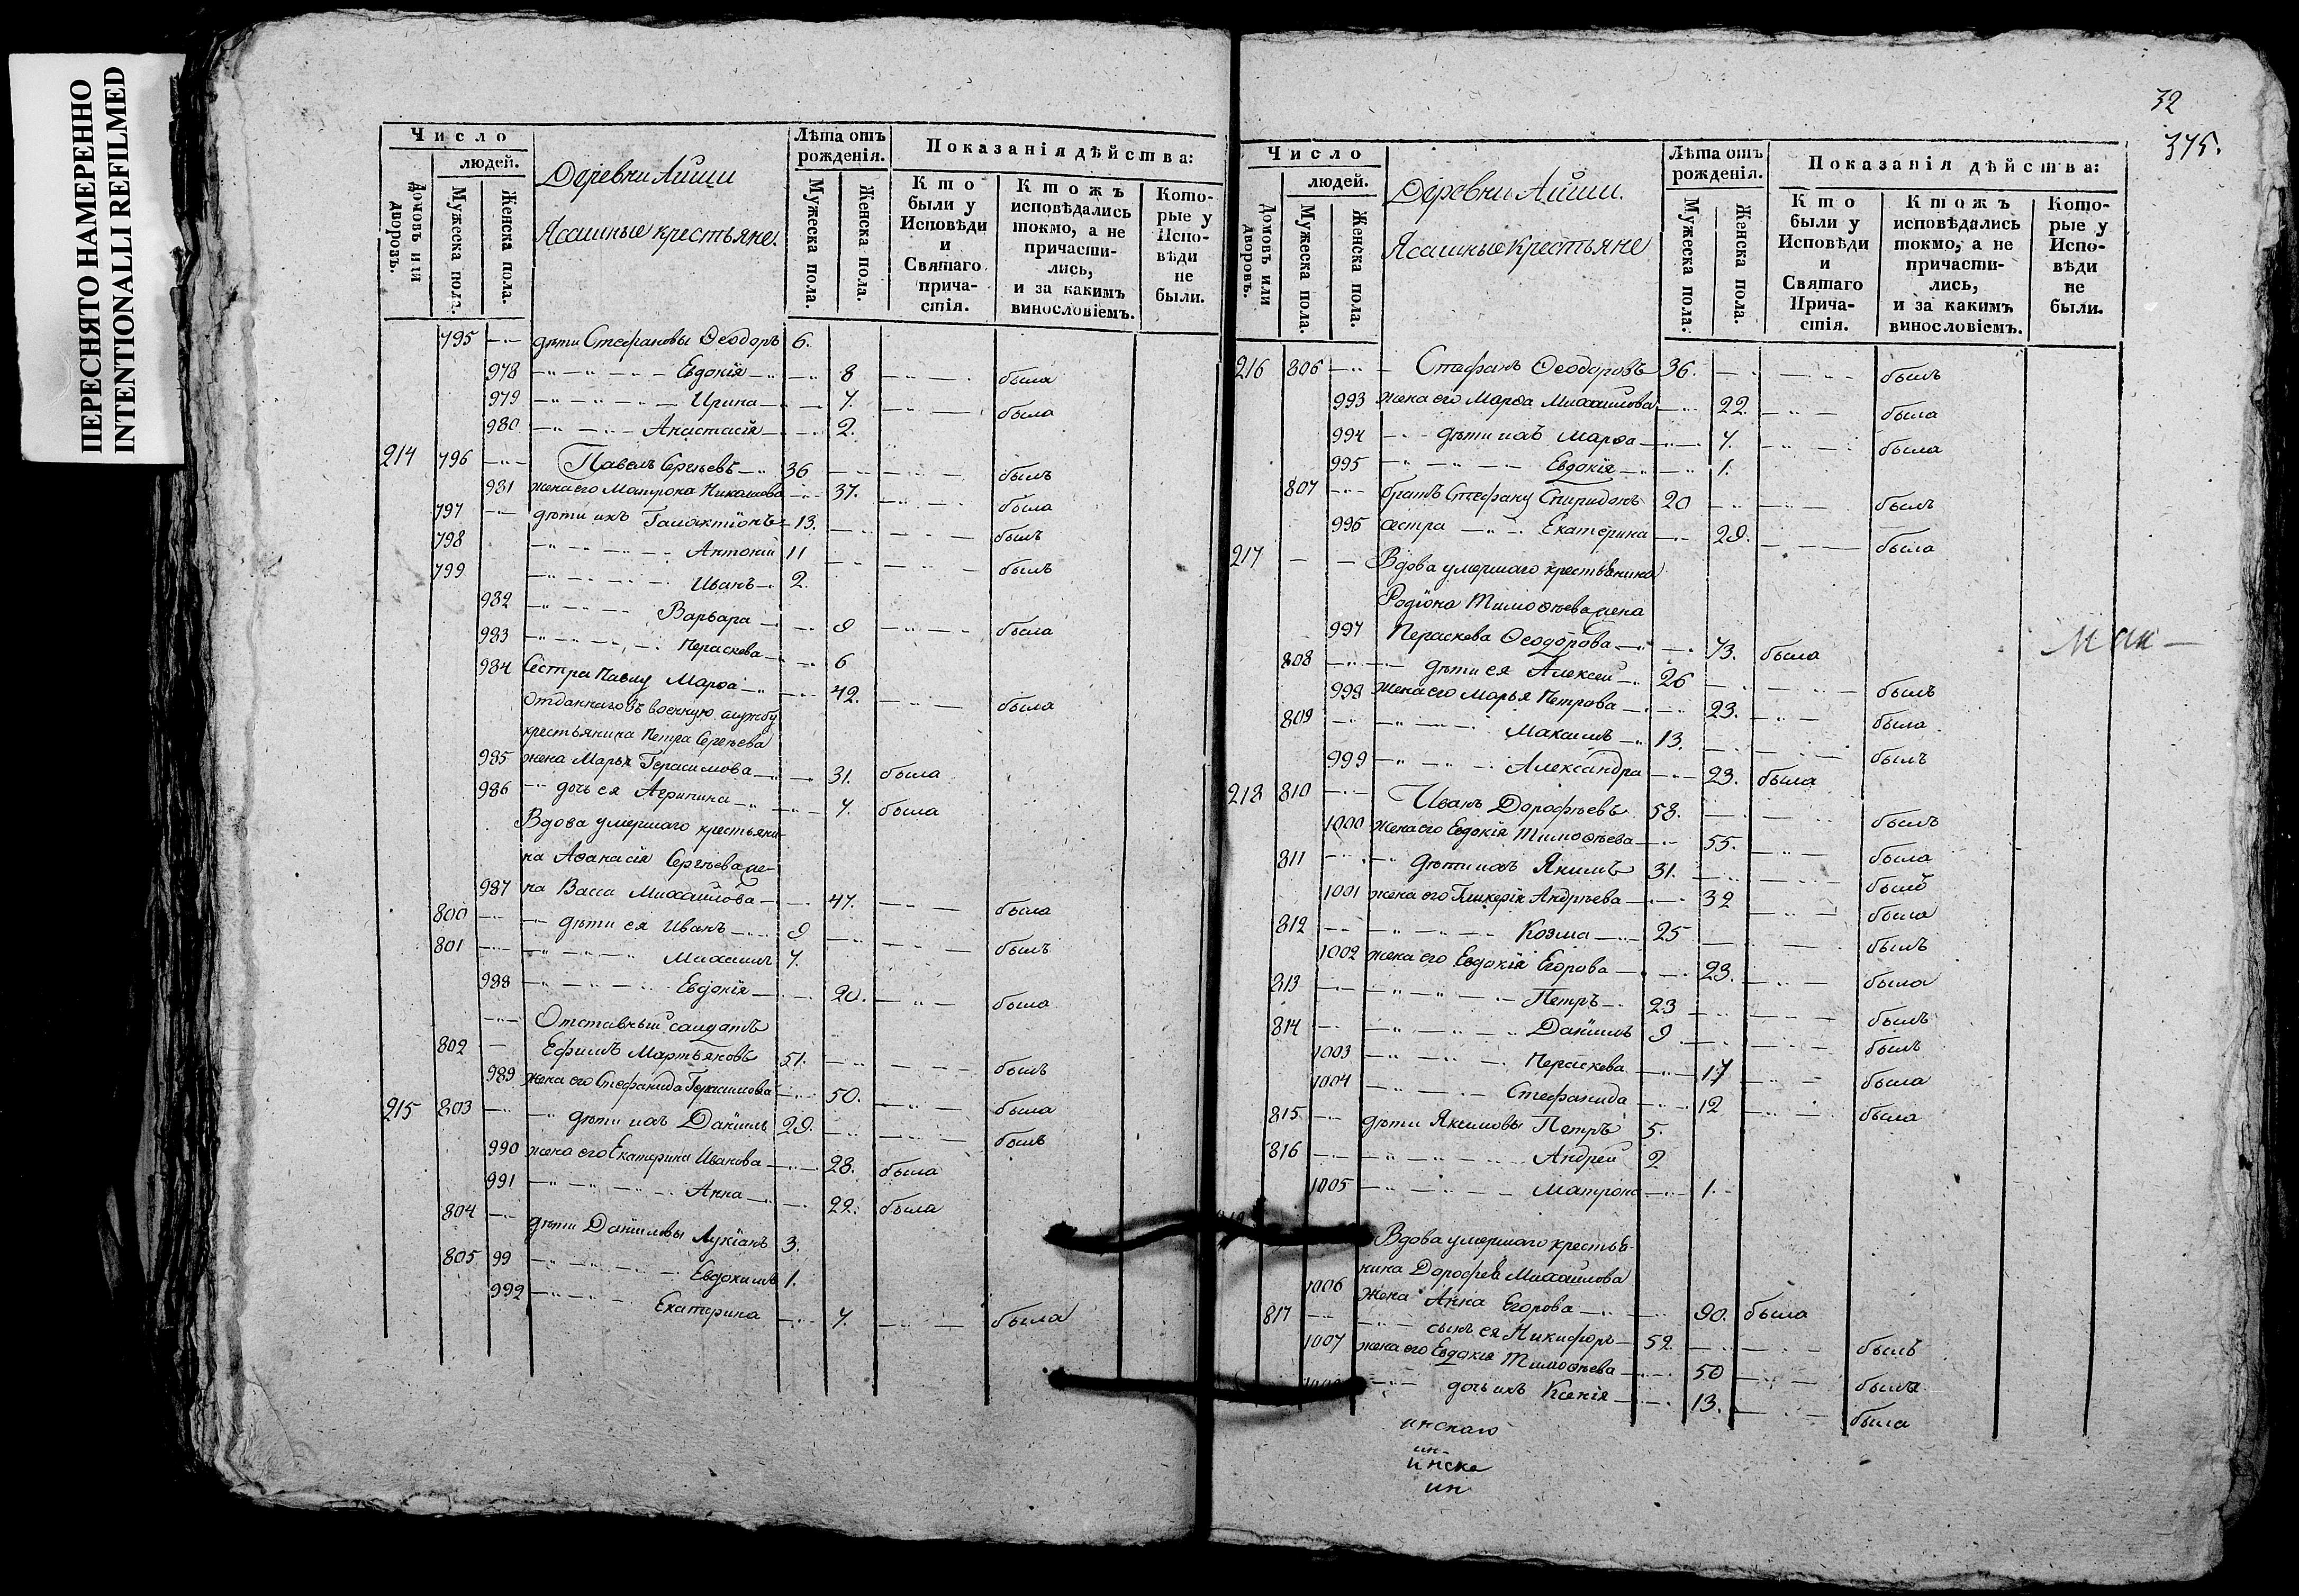 ПЕРЕСНЯТО НАМЕРЕННО
INTENTIONALLI REFILMED
Число
людей.
Домовъ или дворовъ.
Мужеска пола.
Женска пола.
Деревни Айши
Ясашные крестьяне.
Лѣта отъ рожденія.
Мужеска пола.
Женска пола.
Показанія дѣйства:
Кто были у Исповѣди и Святаго причастія.
Ктожъ исповѣдались токмо, а не причастились, и за какимъ винословіемъ.
Которые у Исповѣди не были.
795 дѣти Стефановы Ѳеодоръ 6.
978 Евдокія 8 была
979 Ирина 7. была
980 Анастасія 2.
214 796 Павелъ Сергѣевъ 36 былъ
981 жена его Матрона Николаева 37. была
797 дѣти ихъ Галактіонъ 13. былъ
798 Антоній 11 былъ
799 Иванъ 2.
982 Варвара 9 была
983 Параскева 6
984 Сестра Павлу Марѳа 42. была
Отданнаго въ военную службу
крестьянина Петра Сергѣева
985 жена Марья Герасимова 31. была
986 дочь ея Агрипина 7. была
Вдова умершаго крестьяни-
на Аѳанасія Сергѣева же-
987 на Васса Михайлова 47. была
800 дѣти ея Иванъ 9 былъ
801 Михаилъ 7.
988 Евдокія 20. была
Отставный салдатъ
802 Ефимъ Мартьяновъ 51. былъ
989 жена его Стефанида Герасимова 50. была
215 803 дѣти ихъ Даніилъ 29. былъ
990 жена его Екатерина Иванова 28. была
991 Анна 22. была
804 дѣти Даніиловы Лукіанъ 3.
805 99 Евдокимъ 1.
992 Екатерина 7. была
32
375.
Число
людей.
Домовъ или дворовъ.
Мужеска пола.
Женска пола.
Деревни Айши.
Ясашные крестьяне
Лѣта отъ рожденія.
Мужеска пола.
Женска пола.
Показанія дѣйства:
Кто были у Исповѣди и Святаго Причастія.
Ктожъ исповѣдались токмо, а не причастились, и за какимъ винословіемъ.
Которые у Исповѣди не были.
216 806 Стефанъ Ѳеодоровъ 36. былъ
993 жена его Марѳа Михайлова 22. была
994 дѣти ихъ Марѳа 7. была
995 Евдокія 1.
807 братъ Стефану Спиридонъ 20 былъ
996 сестра Екатерина 29. была
217 Вдова умершаго крестьянина
Родіона Тимоѳѣева жена
997 Параскева Ѳеодорова 73. была
808 дѣти ея Алексѣй 26 былъ
998 жена его Марья Петрова 23. была
809 Максимъ 13. былъ
999 Александра 23. была
218 810 Иванъ Дорофѣевъ 58. былъ
1000 жена его Евдокія Тимоѳѣева 55. была
811 дѣти ихъ Якимъ 31. былъ
1001 жена его Гликерія Андрѣева 32 была
812 Козма 25 былъ
1002 жена его Евдокія Егорова 23. была
813 Петръ 23 былъ
814 Даніилъ 9 былъ
1003 Параскева 17 была
1004 Стефанида 12 была
815 дѣти Якимовы Петръ 5.
816 Андрей 2
1005 Матрона 1.
Вдова умершаго крестья-
нина Дорофея Михайлова
1006 жена Анна Егорова 90. была
817 сынъ ея Никифоръ 52. былъ
1007 жена его Евдокія Тимоѳѣева 50 была
дочь ихъ Ксенія 13. была
инскаго
ин-
инска
ин